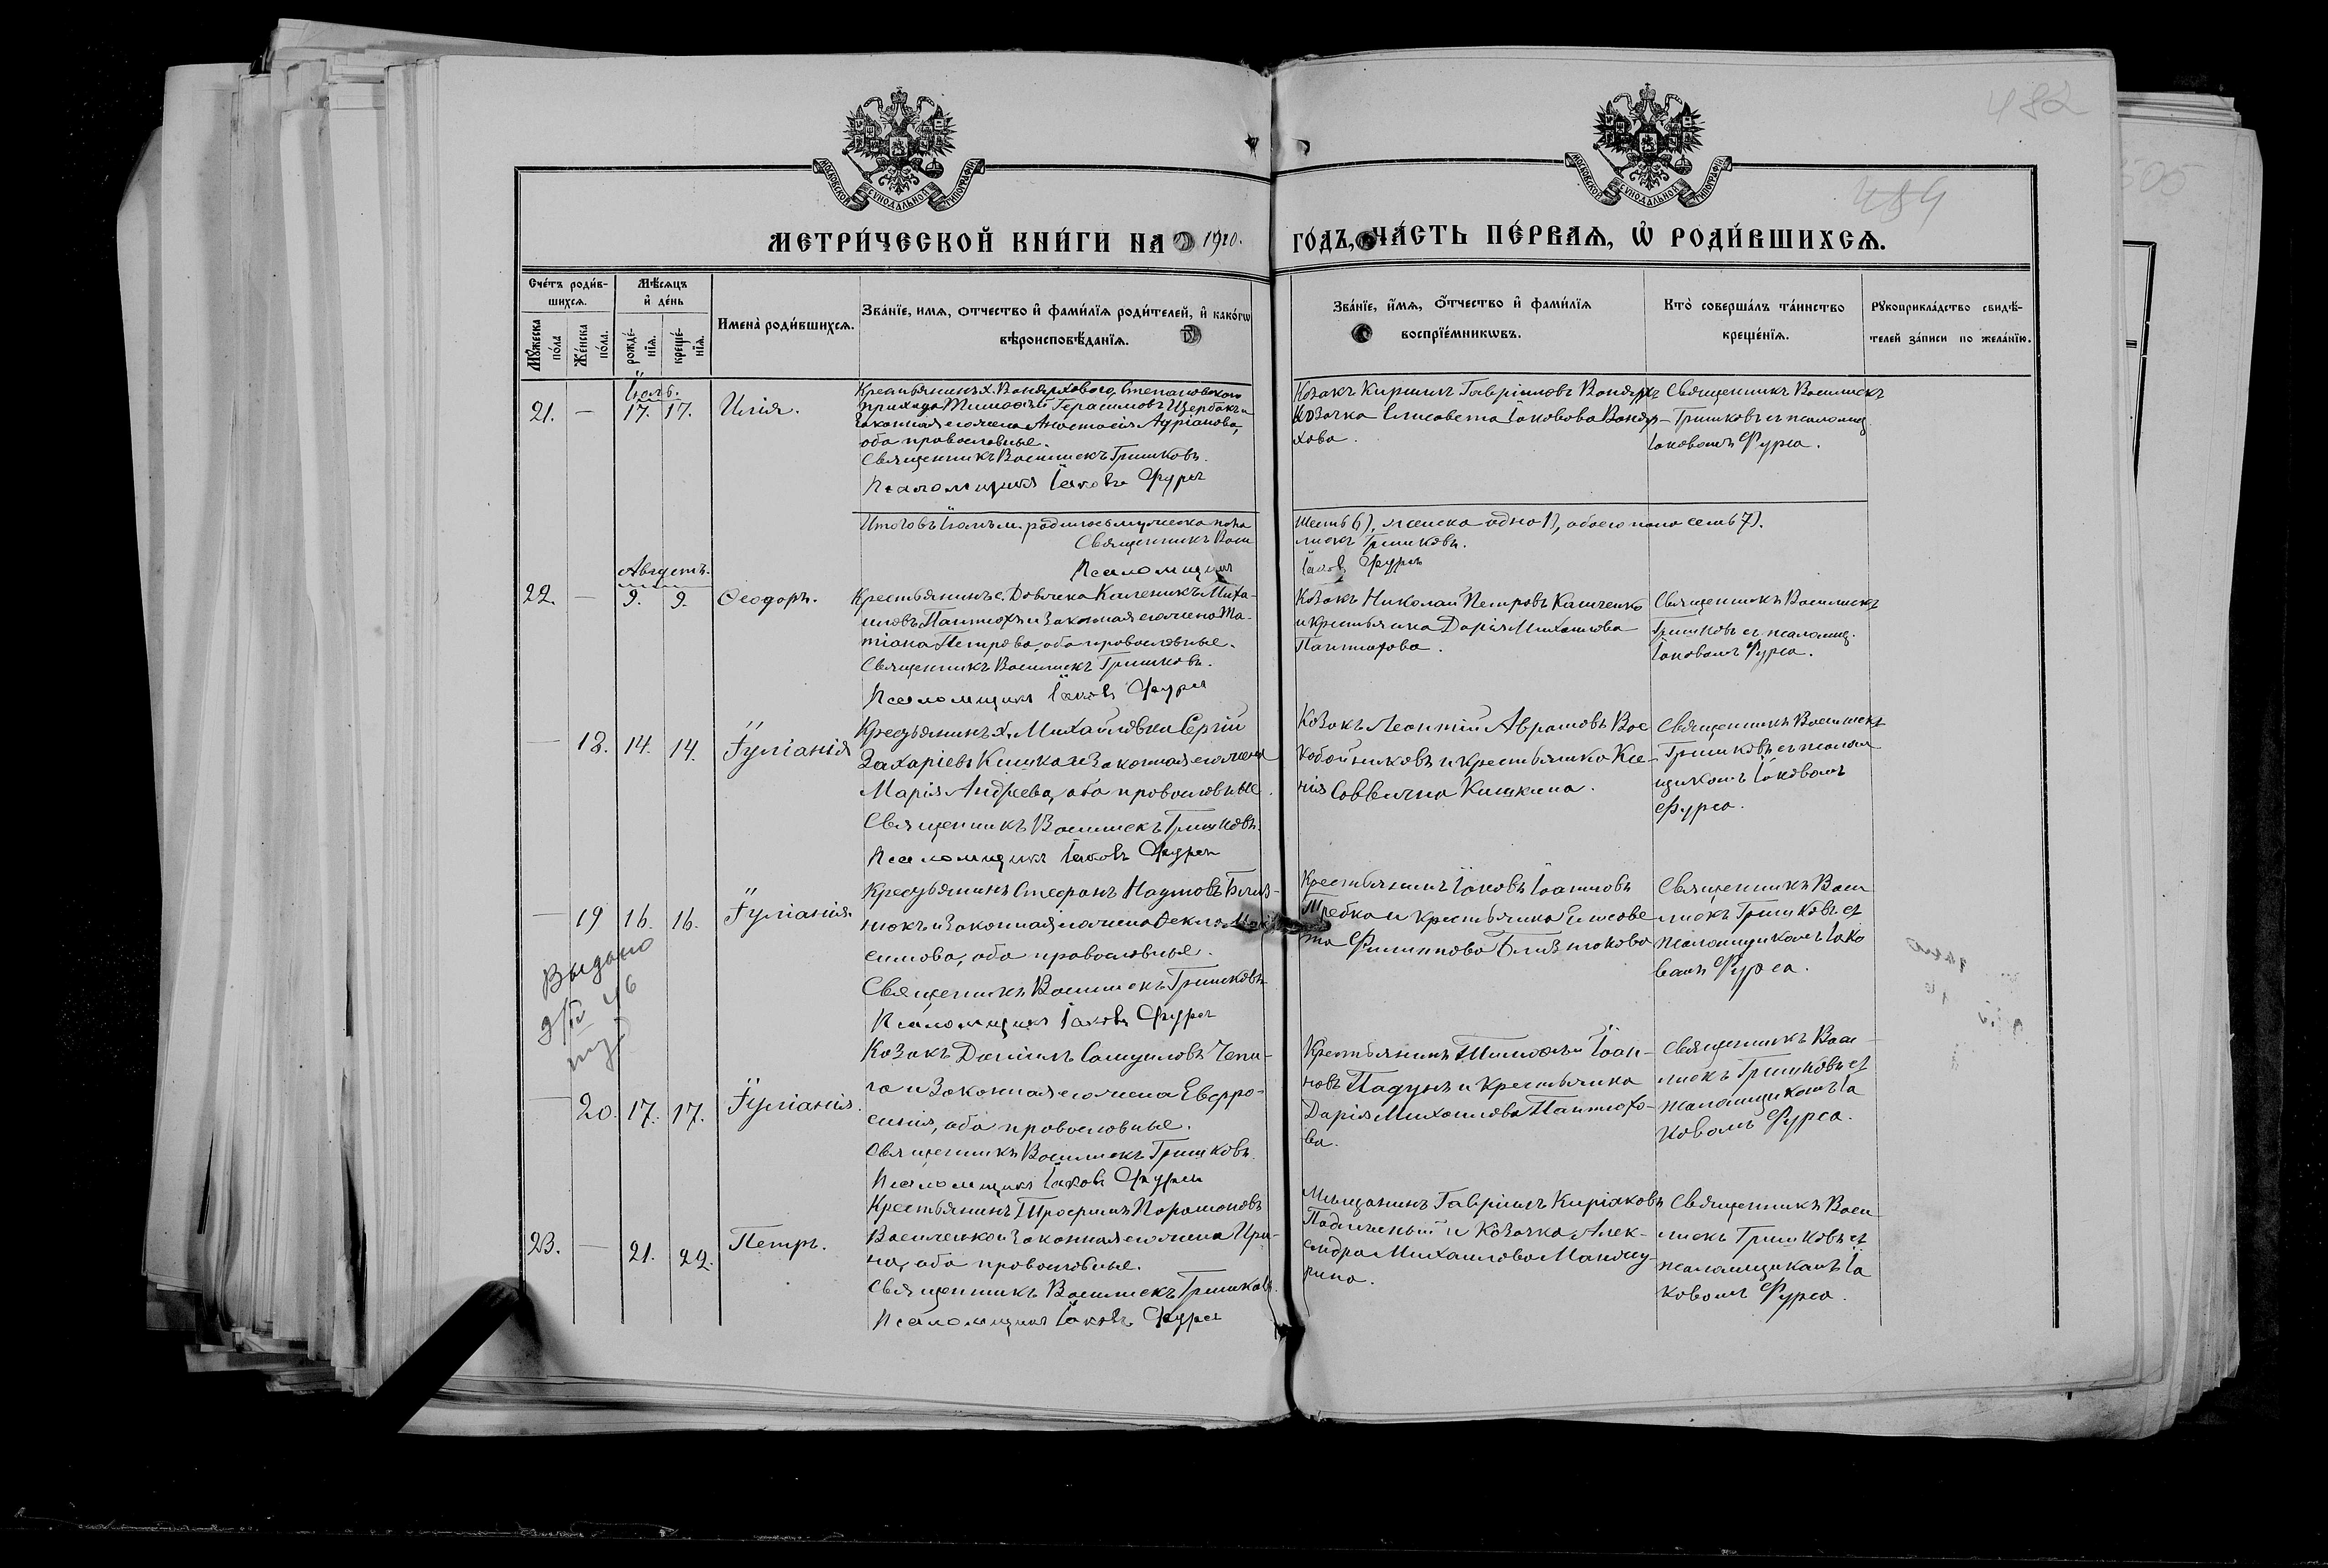 482
484
МОСКОВСКОЙ СѴНОДАЛЬНОЙ ТИПОГРАФІИ
МОСКОВСКОЙ СѴНОДАЛЬНОЙ ТИПОГРАФІИ
МЕТРИ́ЧЕСКОЙ КНИ́ГИ НА 1910. ГО́ДЪ, ЧА́СТЬ ПЕ́РВАѦ, Ѡ҆ РОДИ́ВШИХСѦ.
Сче́тъ роди́в-
шихсѧ.
Мꙋ́жеска по́ла
Же́нска по́ла.
Мѣ́сѧцъ
и҆ де́нь
рожде́-
нїѧ.
креще́-
нїѧ.
Имена̀ роди́вшихсѧ.
Зва́нїе, имѧ, отчество и҆ фами́лїѧ роди́телей, и҆ како́гѡ
вѣроисповѣ́данїѧ.
Зва́нїе, и҆́мѧ, о҆́тчество и҆ фами́лїѧ
воспрїе́мникѡвъ.
Кто̀ соверша́лъ та́инство
креще́нїѧ.
Рꙋкоприкла́дство свидѣ́-
телей за́писи по жела́нїю.
Іюль.
21. — 17. 17. Илія.
Крестьянинъ х. Вондярхового, Степановского
прихода Тимоѳей Герасимовъ Щербакъ и
законная его жена Анастасія Адріанова,
оба православные.
Священникъ Василискъ Гришковъ.
Псаломщикъ Іаковъ Фурса
Козакъ Кирилъ Гавріиловъ Вондярх
Козачка Елисавета Іаковова Вондяр-
хова.
Священникъ Василискъ
Гришковъ съ псаломщ
Іаковомъ Фурса.
Итого въ Іюлѣ м. родилось мужеска пола шесть 6), женска одно 1), обоего пола семь 7).
Священникъ Васи лискъ Гришковъ.
Псаломщикъ Іаковъ Фурса
Августъ.
22. — 9. 9. Ѳеодоръ.
Крестьянинъ с. Довжека Каленикъ Миха-
иловъ Пантюхъ и законная его жена Та-
тіана Петрова, оба православные.
Священникъ Василискъ Гришковъ.
Псаломщикъ Іаковъ Фурса
Козакъ Николай Петровъ Касиченко
и крестьянка Дарія Михаилова
Пантюхова.
Священникъ Василискъ
Гришковъ съ псаломщ.
Іаковомъ Фурса.
— 18. 14. 14. Іуліанія
Крестьянинъ х. Михайловки Сергій
Захаріевъ Кишка и законная его жена
Марія Андреева, оба православные.
Священникъ Василискъ Гришковъ.
Псаломщикъ Іаковъ Фурса
Козакъ Леонтій Аврамовъ Вос
кобойниковъ и крестьянка Ксе-
нія Саввична Кишкина.
Священникъ Василискъ
Гришковъ съ псалом
щикомъ Іаковомъ
Фурса.
— 19 16. 16. Іуліанія.
Крестьянинъ Стефанъ Наумовъ Близ-
нюкъ и законная его жена Ѳекла Мак
симова, оба православные.
Священникъ Василискъ Гришковъ
Псаломщикъ Іаковъ Фурса
Крестьянинъ Іаковъ Іоанновъ
Требка и крестьянка Елисаве
та Филиппова Близнюкова
Священникъ Васи
лискъ Гришковъ съ
псаломщикомъ Іако
вомъ Фурса.
Выдано
46
— 20. 17. 17. Іуліанія.
Козакъ Даніилъ Самуиловъ Чепи-
га и законная его жена Евфро-
синія, оба православные.
Священникъ Василискъ Гришковъ.
Псаломщикъ Іаковъ Фурса
Крестьянинъ Тимоѳей Іоан-
новъ Падунъ и крестьянка
Дарія Михаилова Пантюхо-
ва.
Священникъ Васи
лискъ Гришковъ съ
псаломщикомъ Іа
ковомъ Фурса.
23. — 21. 22. Петръ.
Крестьянинъ Трофимъ Парамоновъ
Василенко и законная его жена Ири-
на, оба православные.
Священникъ Василискъ Гришковъ.
Псаломщикъ Іаковъ Фурса
Мѣщанинъ Гавріилъ Киріаковъ
и Козачка Алек-
сндра Михаилова Манжу-
рина.
Священникъ Васи
лискъ Гришковъ съ
псаломщикомъ Іа
ковомъ Фурса.